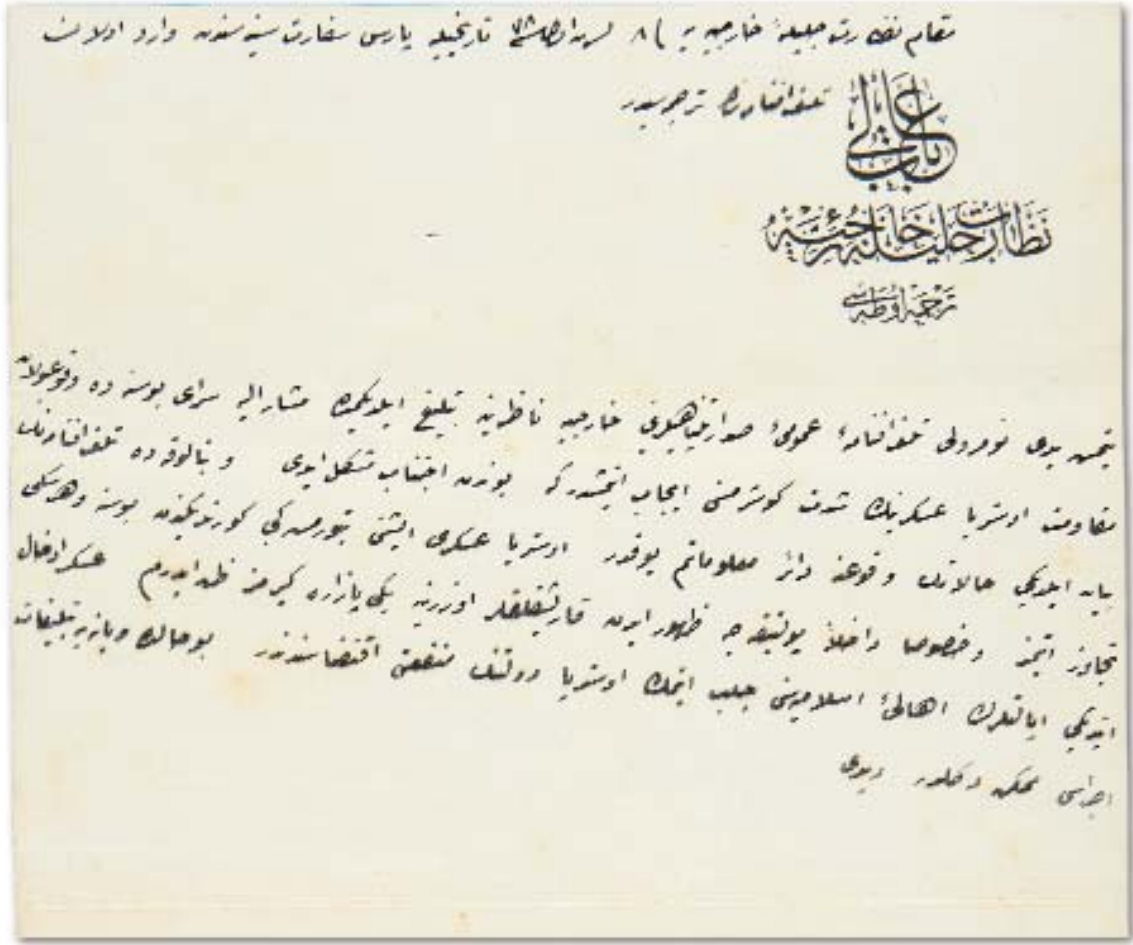 مقام نظارت جليلۀ خارجيه يه ٢٨ تاريخيله پارس سفارت سنيه سندن وارد اولان
تلغرافنامه نك ترجمه سيدر
باب عالی
نظارت جليلۀ خارجيه
ترجمه اوطه سی
يتمش يدی نومرولی تلغرافنامۀ عموميۀ خارجيه ناظرينه تبليغ ايلديكمده مشار اليه سرای بوسنه ده وقوعبولان
مقاومت اوستريا عسكرينك شدت كوسترمسنی ايجاب ايتمشدر كه بوندن اجتناب مشكل ايدی و بنالوقه ده تلغرافنامه نك
بيان ايلديكی حالاتك وقوعنه دائر معلوماتم يوقدر اوستريا عسكری ايشنی بتورمش كبی كورندیكندن بوسنه وهرسكی
تجاوز ايتمز و خصوصا داخلاً پولتيقه جه ظهور ايدن قارشيقلقلر اوزرينه يكی پازاره كيرمز ظن ايدرم عسكر ادخال
ايتديكی ايالتلرك اهالئ اسلاميه سنی جلب ايتمك اوستريا دولتنك منفعتی اقتضاسندندر بوحالده تبليغات
اجراسی ممكن دكلدر ديدی